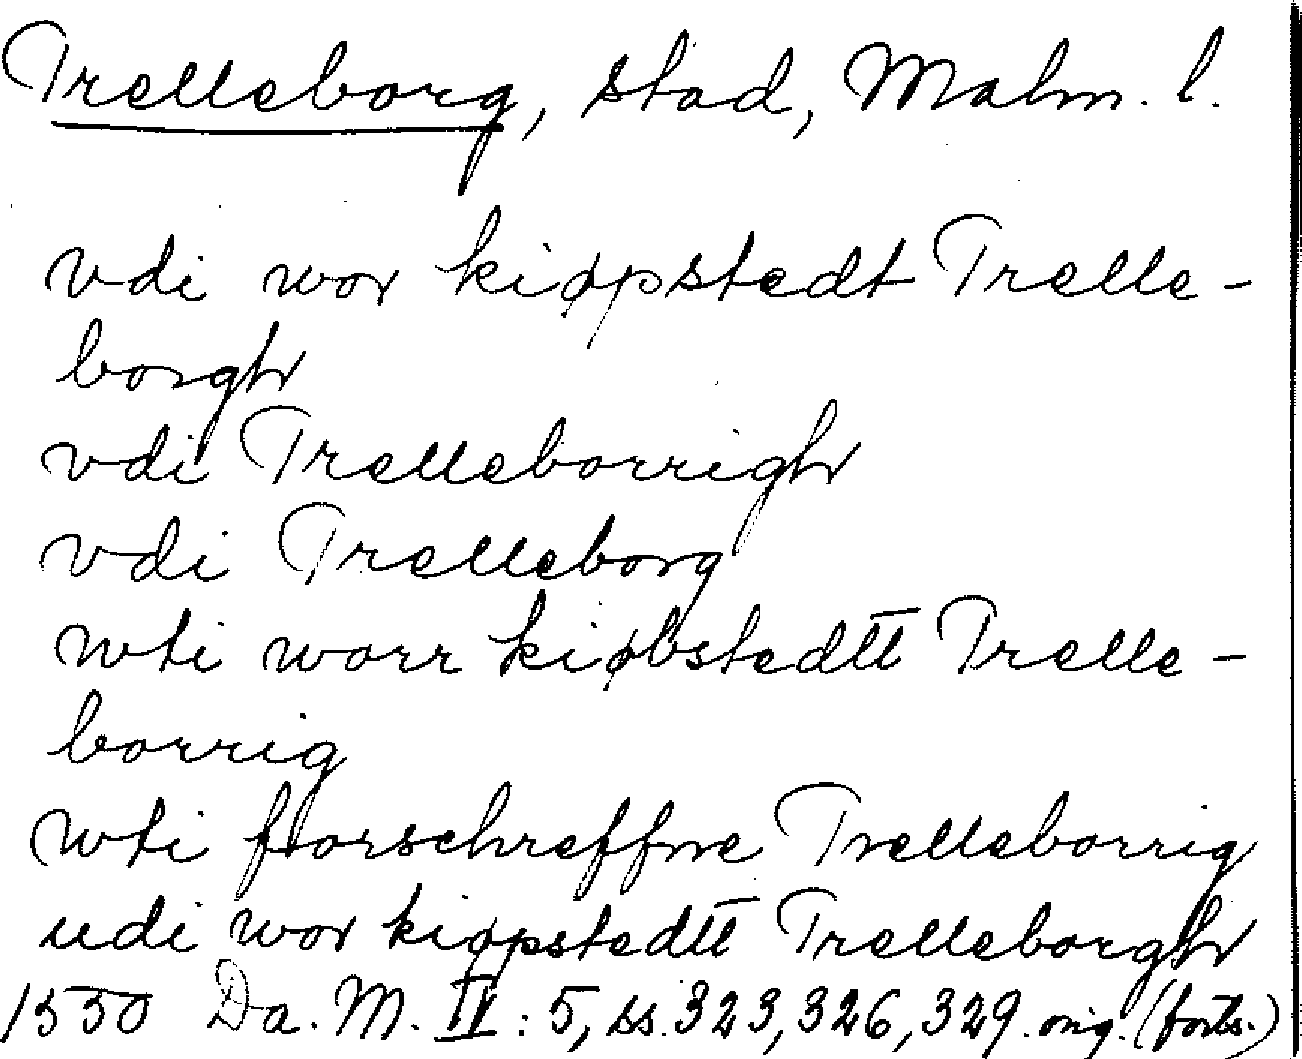 Trelleborg, stad, Malm. l.
vdi wor kiøpstedt Trelle-
borgh
vdi Trelleborrigh
vdi Trelleborg
wti worr kiøbstedtt Trelle-
borrig
wti forschreffne Trelleborrig
udi wor kiøpstedtt Trelleborgh
1550 Da. M. II : 5, ss. 323, 326, 329. orig. (forts.)